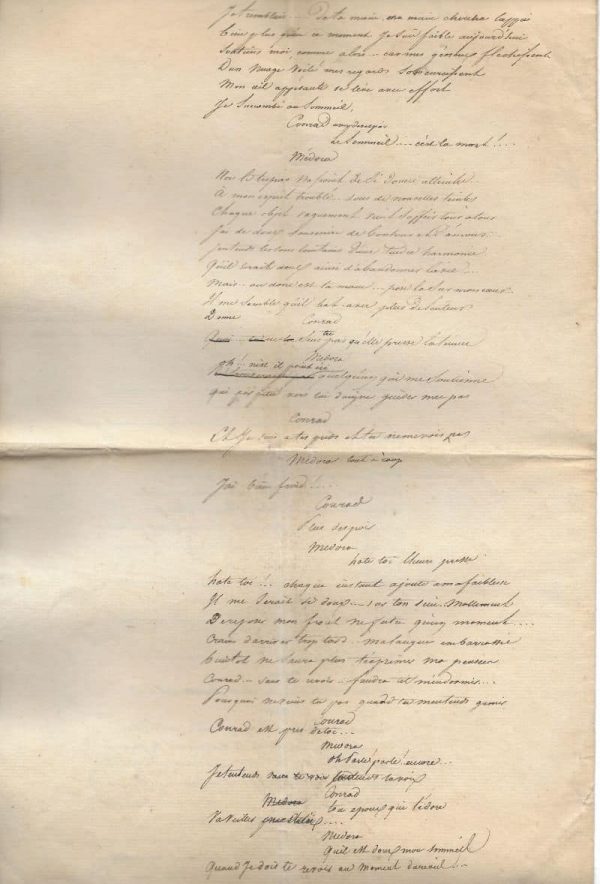 Je tremblais... De ta main, ma main cherche l'appui
Bien plus qu'en ce moment Je suis faible aujourd'hui
Soutiens moi, comme alors car mes genoux fléchissent
D'un nuage voilé mes regards s'obscurcissent
Mon œil appesanti se lève avec effort
Je succombe au sommeil.
Conrad
Le sommeil.... c'est la mort!...
Médora
Non le trépas n'a point de si douce atteinte
A mon esprit troublé sous de nouvelles teintes
Chaque objet vaguement vient s'offrir tour a tour
J'ai de doux souvenirs de bonheur et d'amour
J'entends les sons lointains d'une tendre harmonie
Qu'il serait doux ainsi d'abandonner la vie...
Mais où donc est ta main... pose la sur mon cœur
Il me semble qu'il bat avec plus de lenteur
Donne
Conrad
Sens tu pas qu'elle presse la tienne
Médora
oh! n'est il point ici
quelqu'un qui me soutienne
qui jusque vers lui daigne guider mes pas
Conrad
Et Je suis a tes pieds et tu ne me vois pas
Médora tout à coup
J'ai bien froid!...
Conrad
Plus d'espoir
Médora
hate toi l'heure presse
hate toi!... chaque instant ajoute a ma faiblesse
Il me serait si doux sur ton sein mollement
De reposer mon front ne fut ce qu'un moment....
Crains d'arriver trop tard ma langue embarrassée
Bientot ne saura plus t'exprimer ma pensée
Conrad sans te revoir faudra-t-il m'endormir...
Pourquoi ne viens tu pas quand tu m'entends gémir
Conrad
Conrad est près de toi...
Médora
oh! parle! parle! encore...
J'entends ta voix
Conrad
ton epoux qui t'adore
Médora
Qu'il est doux mon sommeil
Quand Je dois te revoir au moment du réveil!..